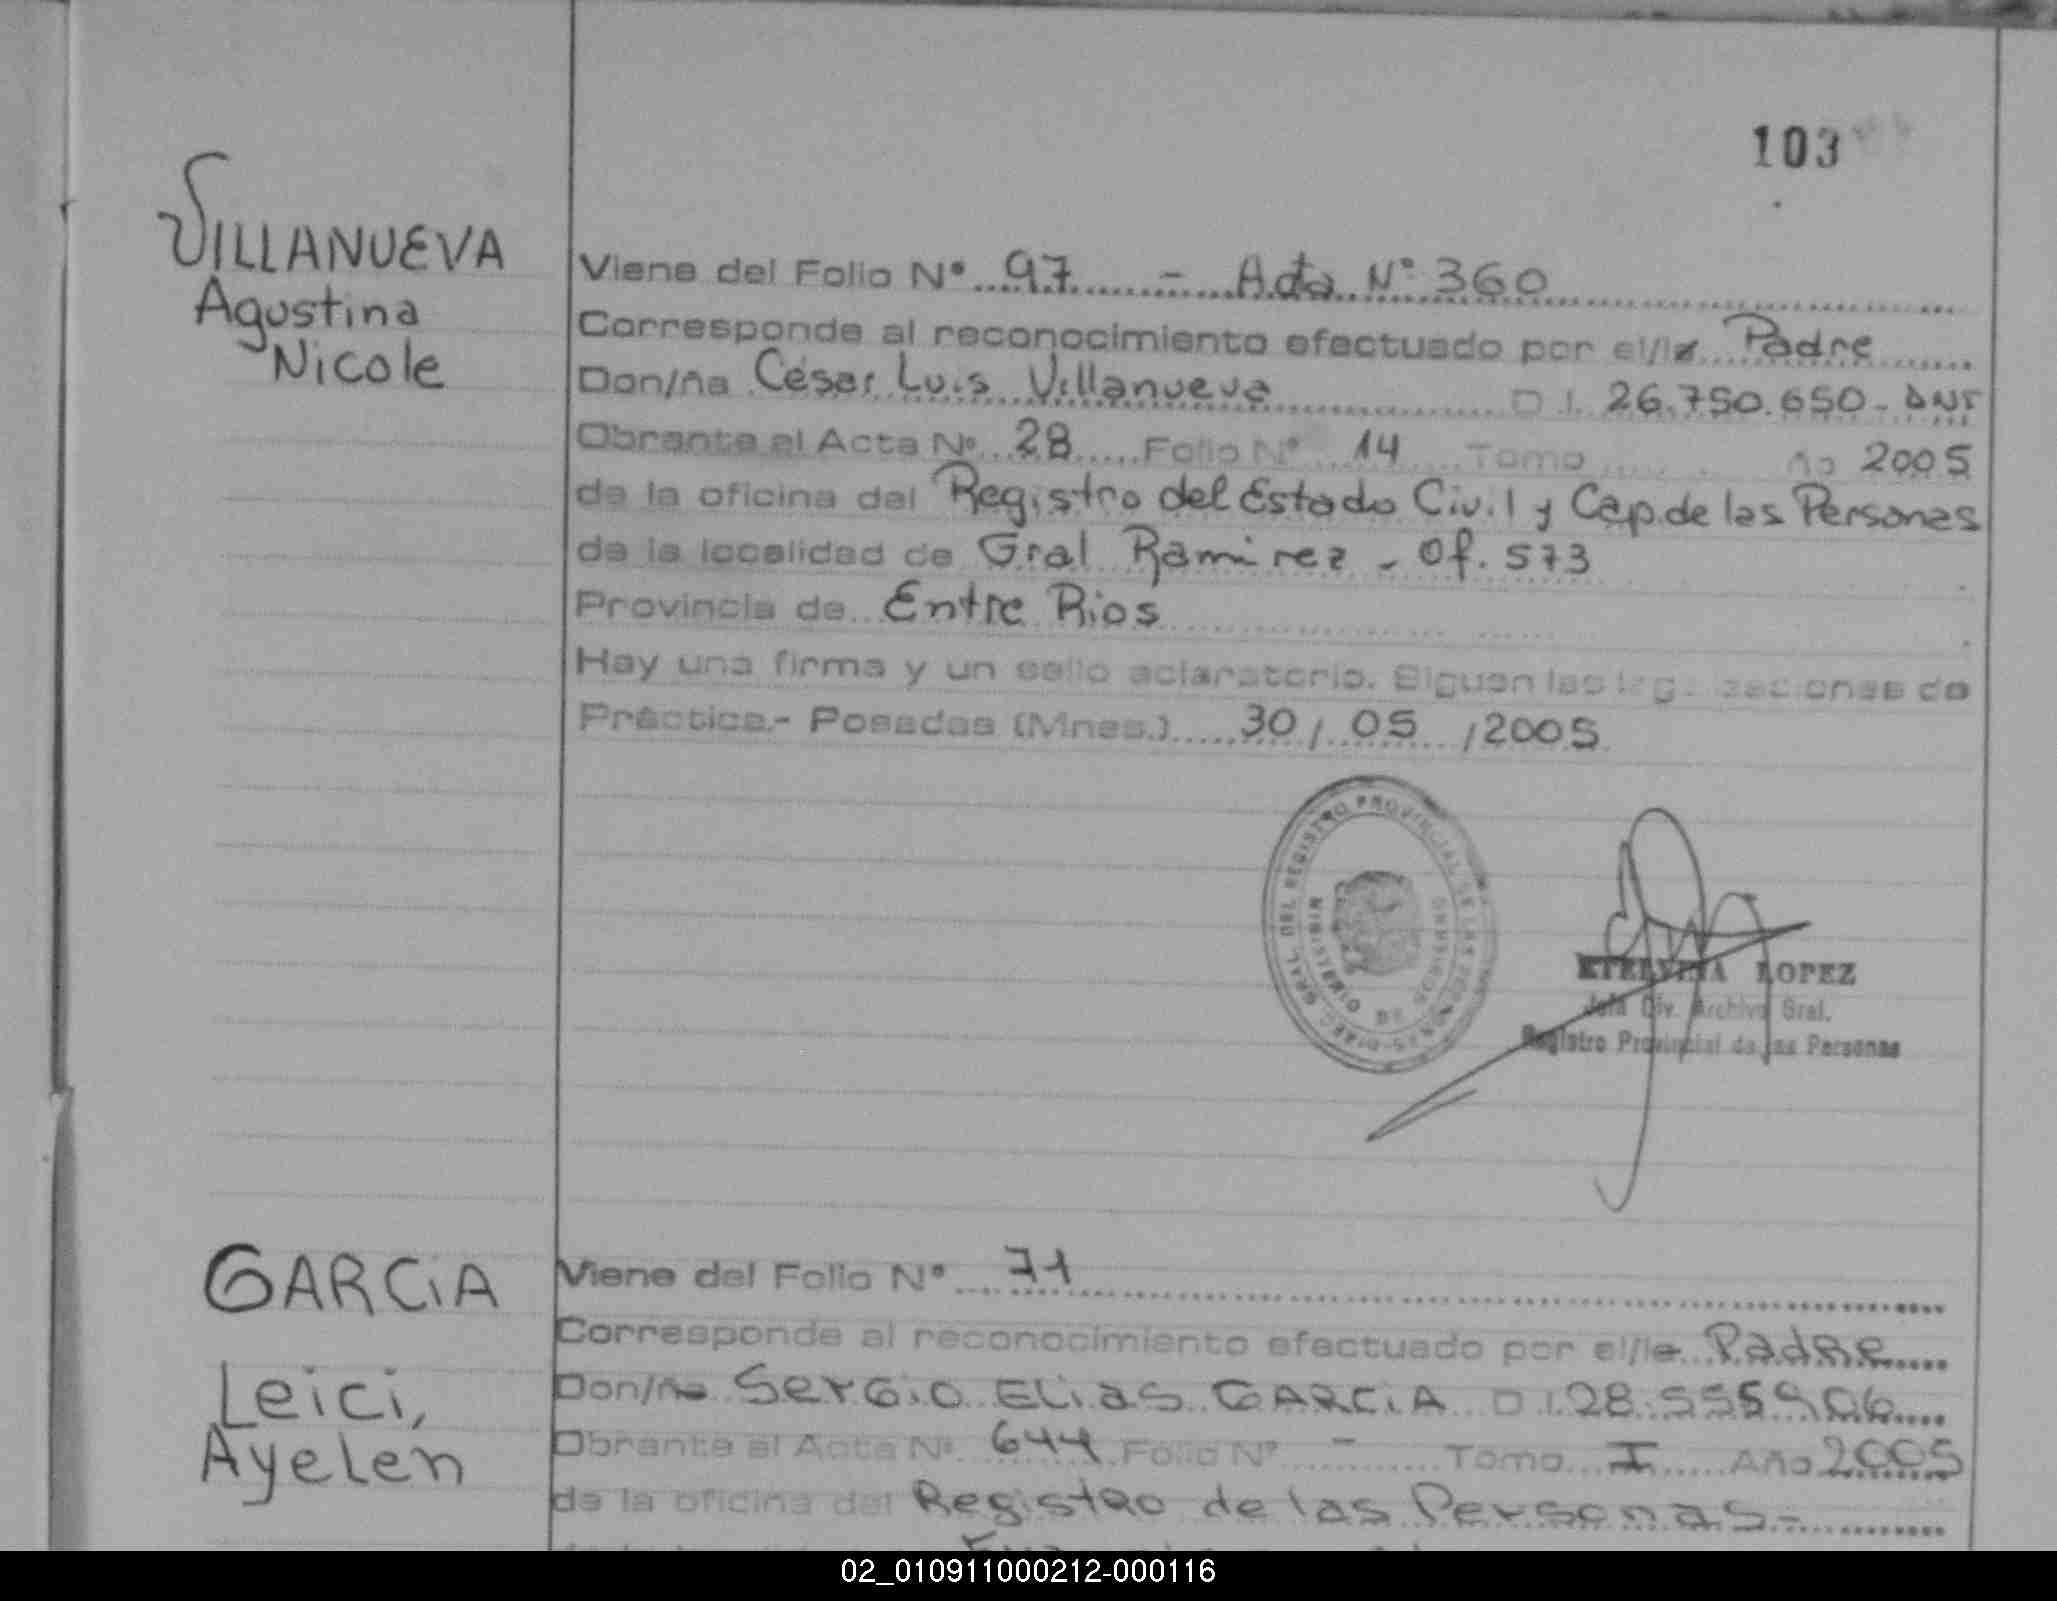 103
VILLANUEVA
Agustina
Nicole
Viene del Folio Nº 97 - Acta Nº 360
Corresponde al reconocimiento efectuado por el/la Padre
Don/ña César Luis Villanueva D.I. 26.750.650- DNI
Obrante al Acta Nº 28 Folio Nº 14 Tomo ño 2005
de la oficina del Registro del Estado Civil y Cap. de las Personas
de la localidad de Gral Ramirez - Of. 573
Provincia de Entre Rios
Hay una firma y un sello aclaratorio. Siguen las de
Práctica.- Posadas (Mnes.) 30/ 05 /2005
DIREC. GRAL. DEL REGISTRO PROVINCIAL DE LAS PERSONAS
MINISTERIO DE
ETELVINA LOPEZ
Jefa Div. Archivo Gral.
Registro Provincial de las Personas
GARCiA
Leici,
Ayelen
Viene del Folio Nº 71
Corresponde al reconocimiento efectuado por el/la Padre
Don/ña Sergio Elias GARCiA D.I. 28.555.906
Obrante al Acta Nº 644 Folio Nº - Tomo I Año 2005
de la oficina del Registro de las Personas-
02_010911000212-000116